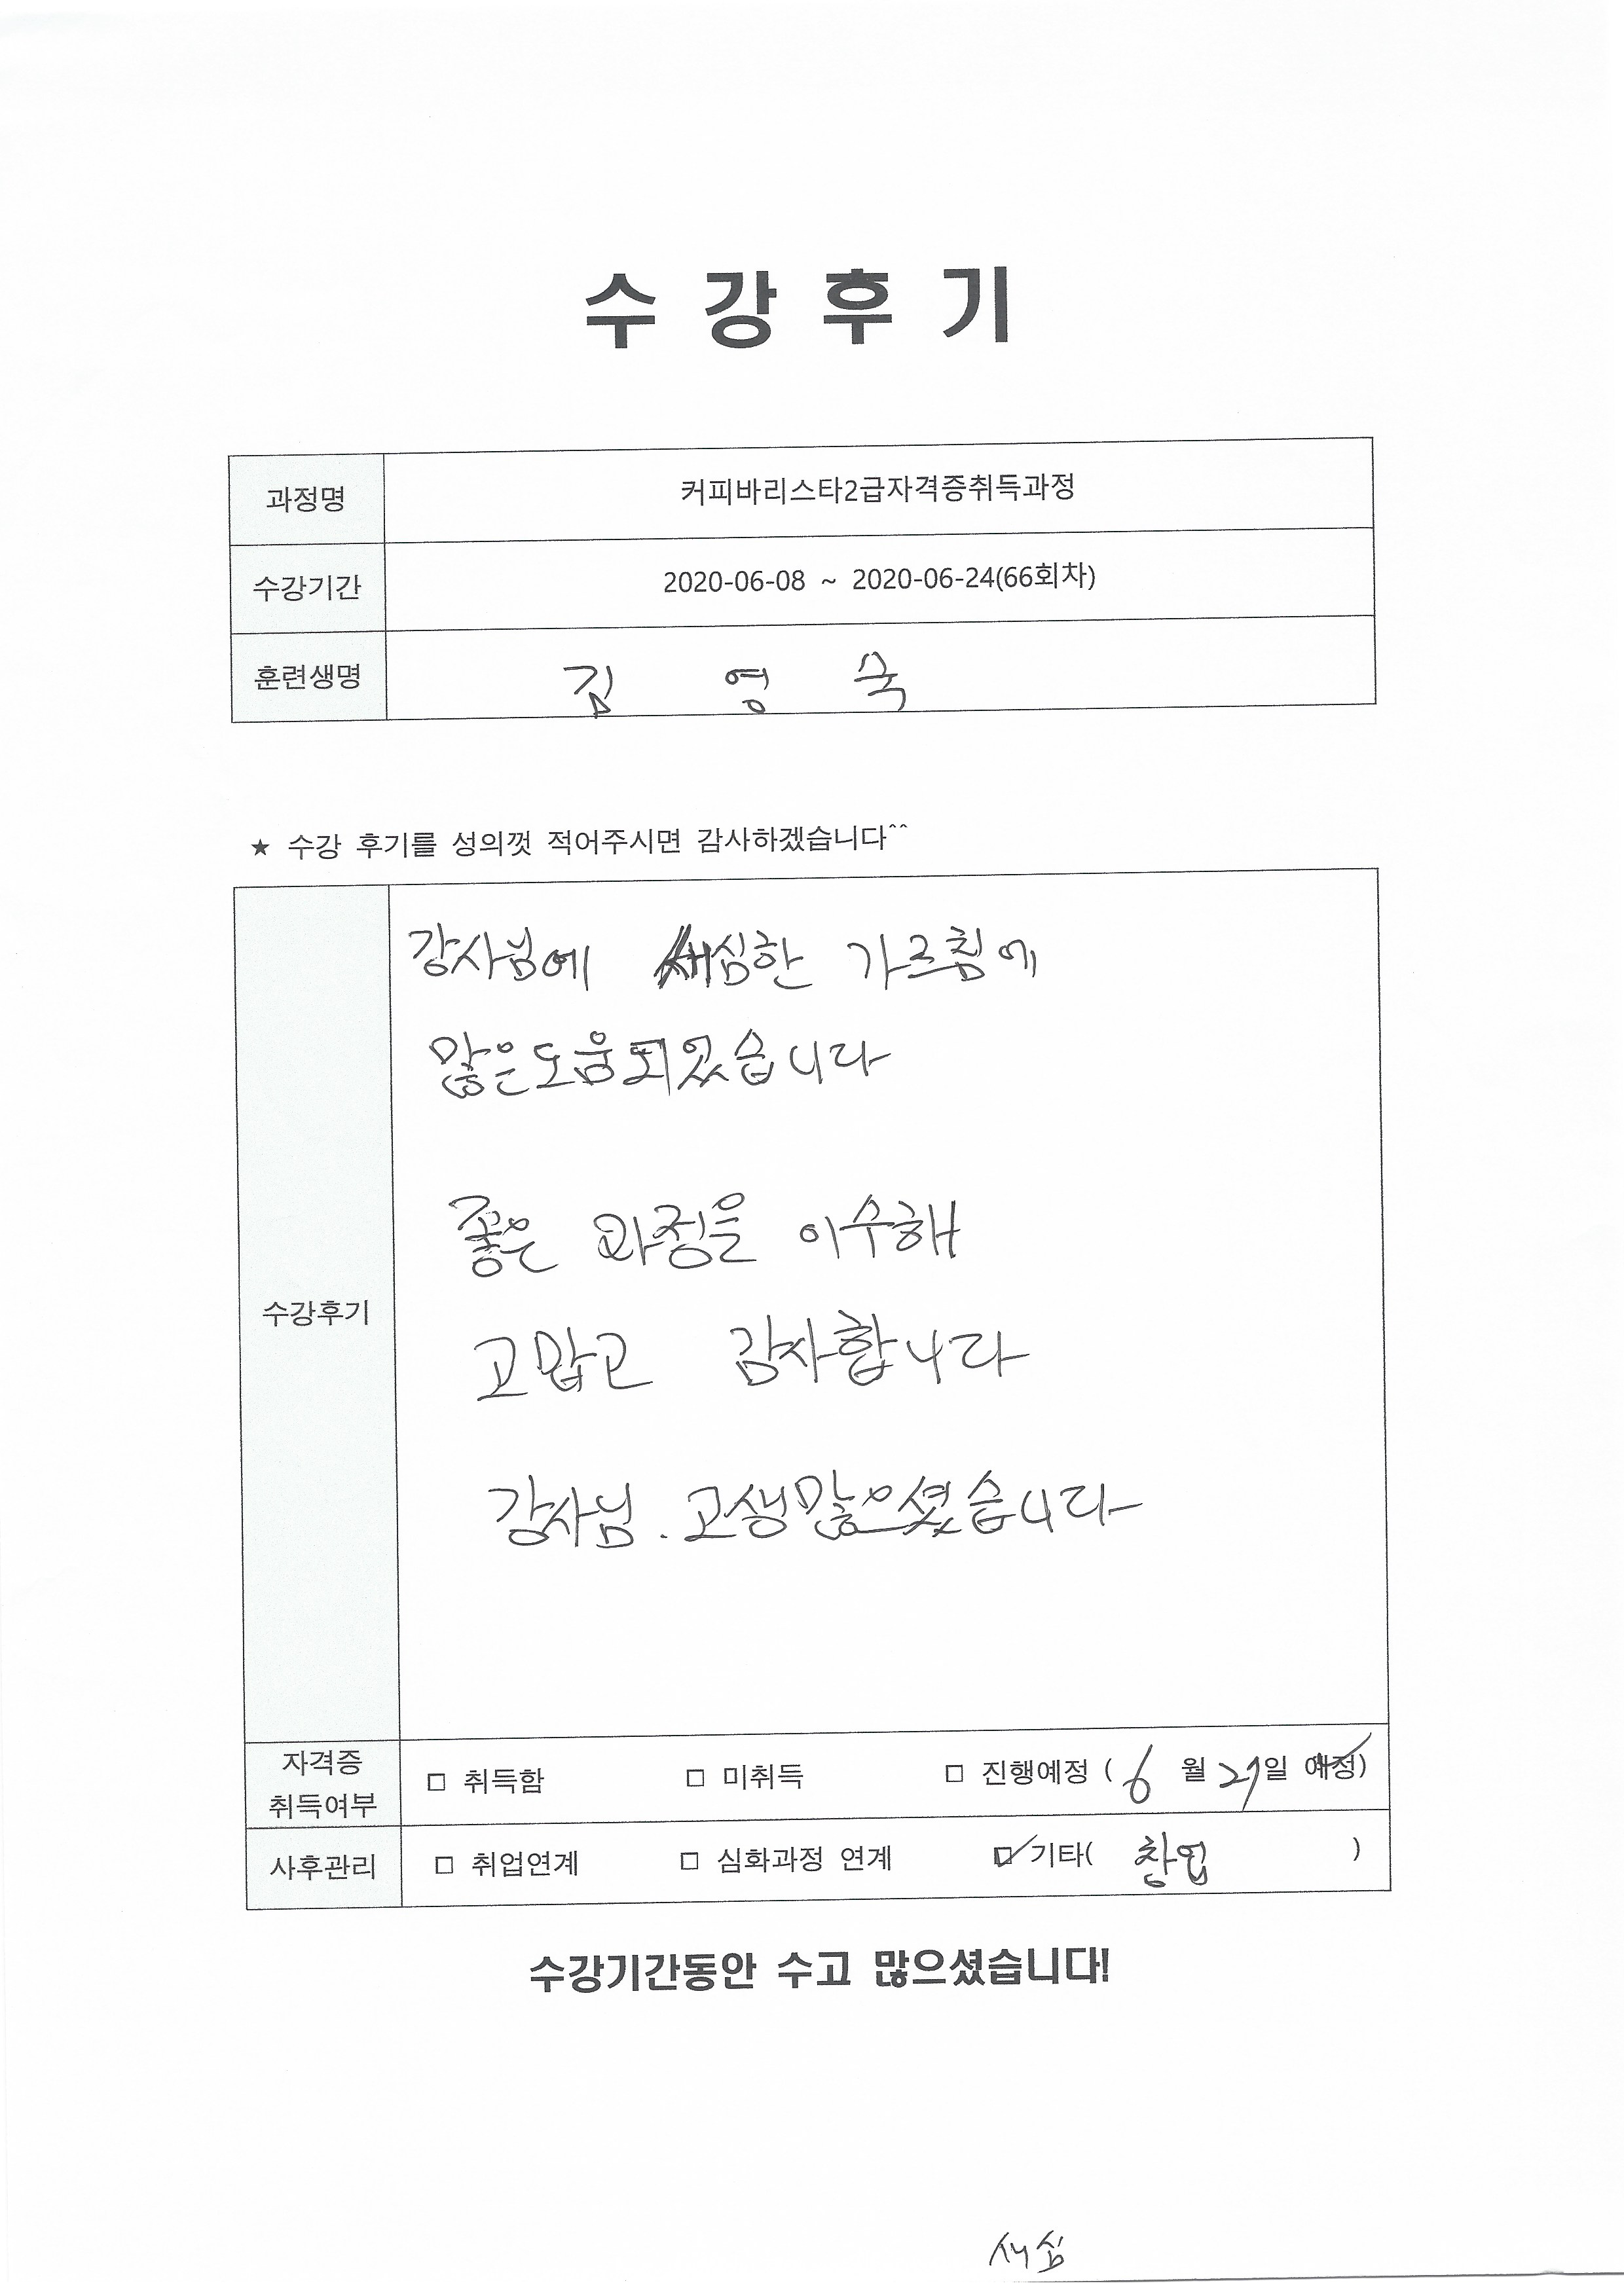 수 강 후 기
과정명 커피바리스타2급자격증취득과정
수강기간 2020-06-08 ~ 2020-06-24(66회차)
훈련생명 김 영 숙
★ 수강 후기를 성의껏 적어주시면 감사하겠습니다^^
강사님에 세심한 가르침에
많은도움되었습니다
좋은 과정을 이수해
수강후기
고맙고 감사합니다
강사님. 고생많으셨습니다
자격증
취득여부
□ 취득함 □ 미취득 □ 진행예정 ( 6 월 27일 예정)
사후관리 □ 취업연계 □ 심화과정 연계 ☑ 기타( 창업 )
수강기간동안 수고 많으셨습니다!